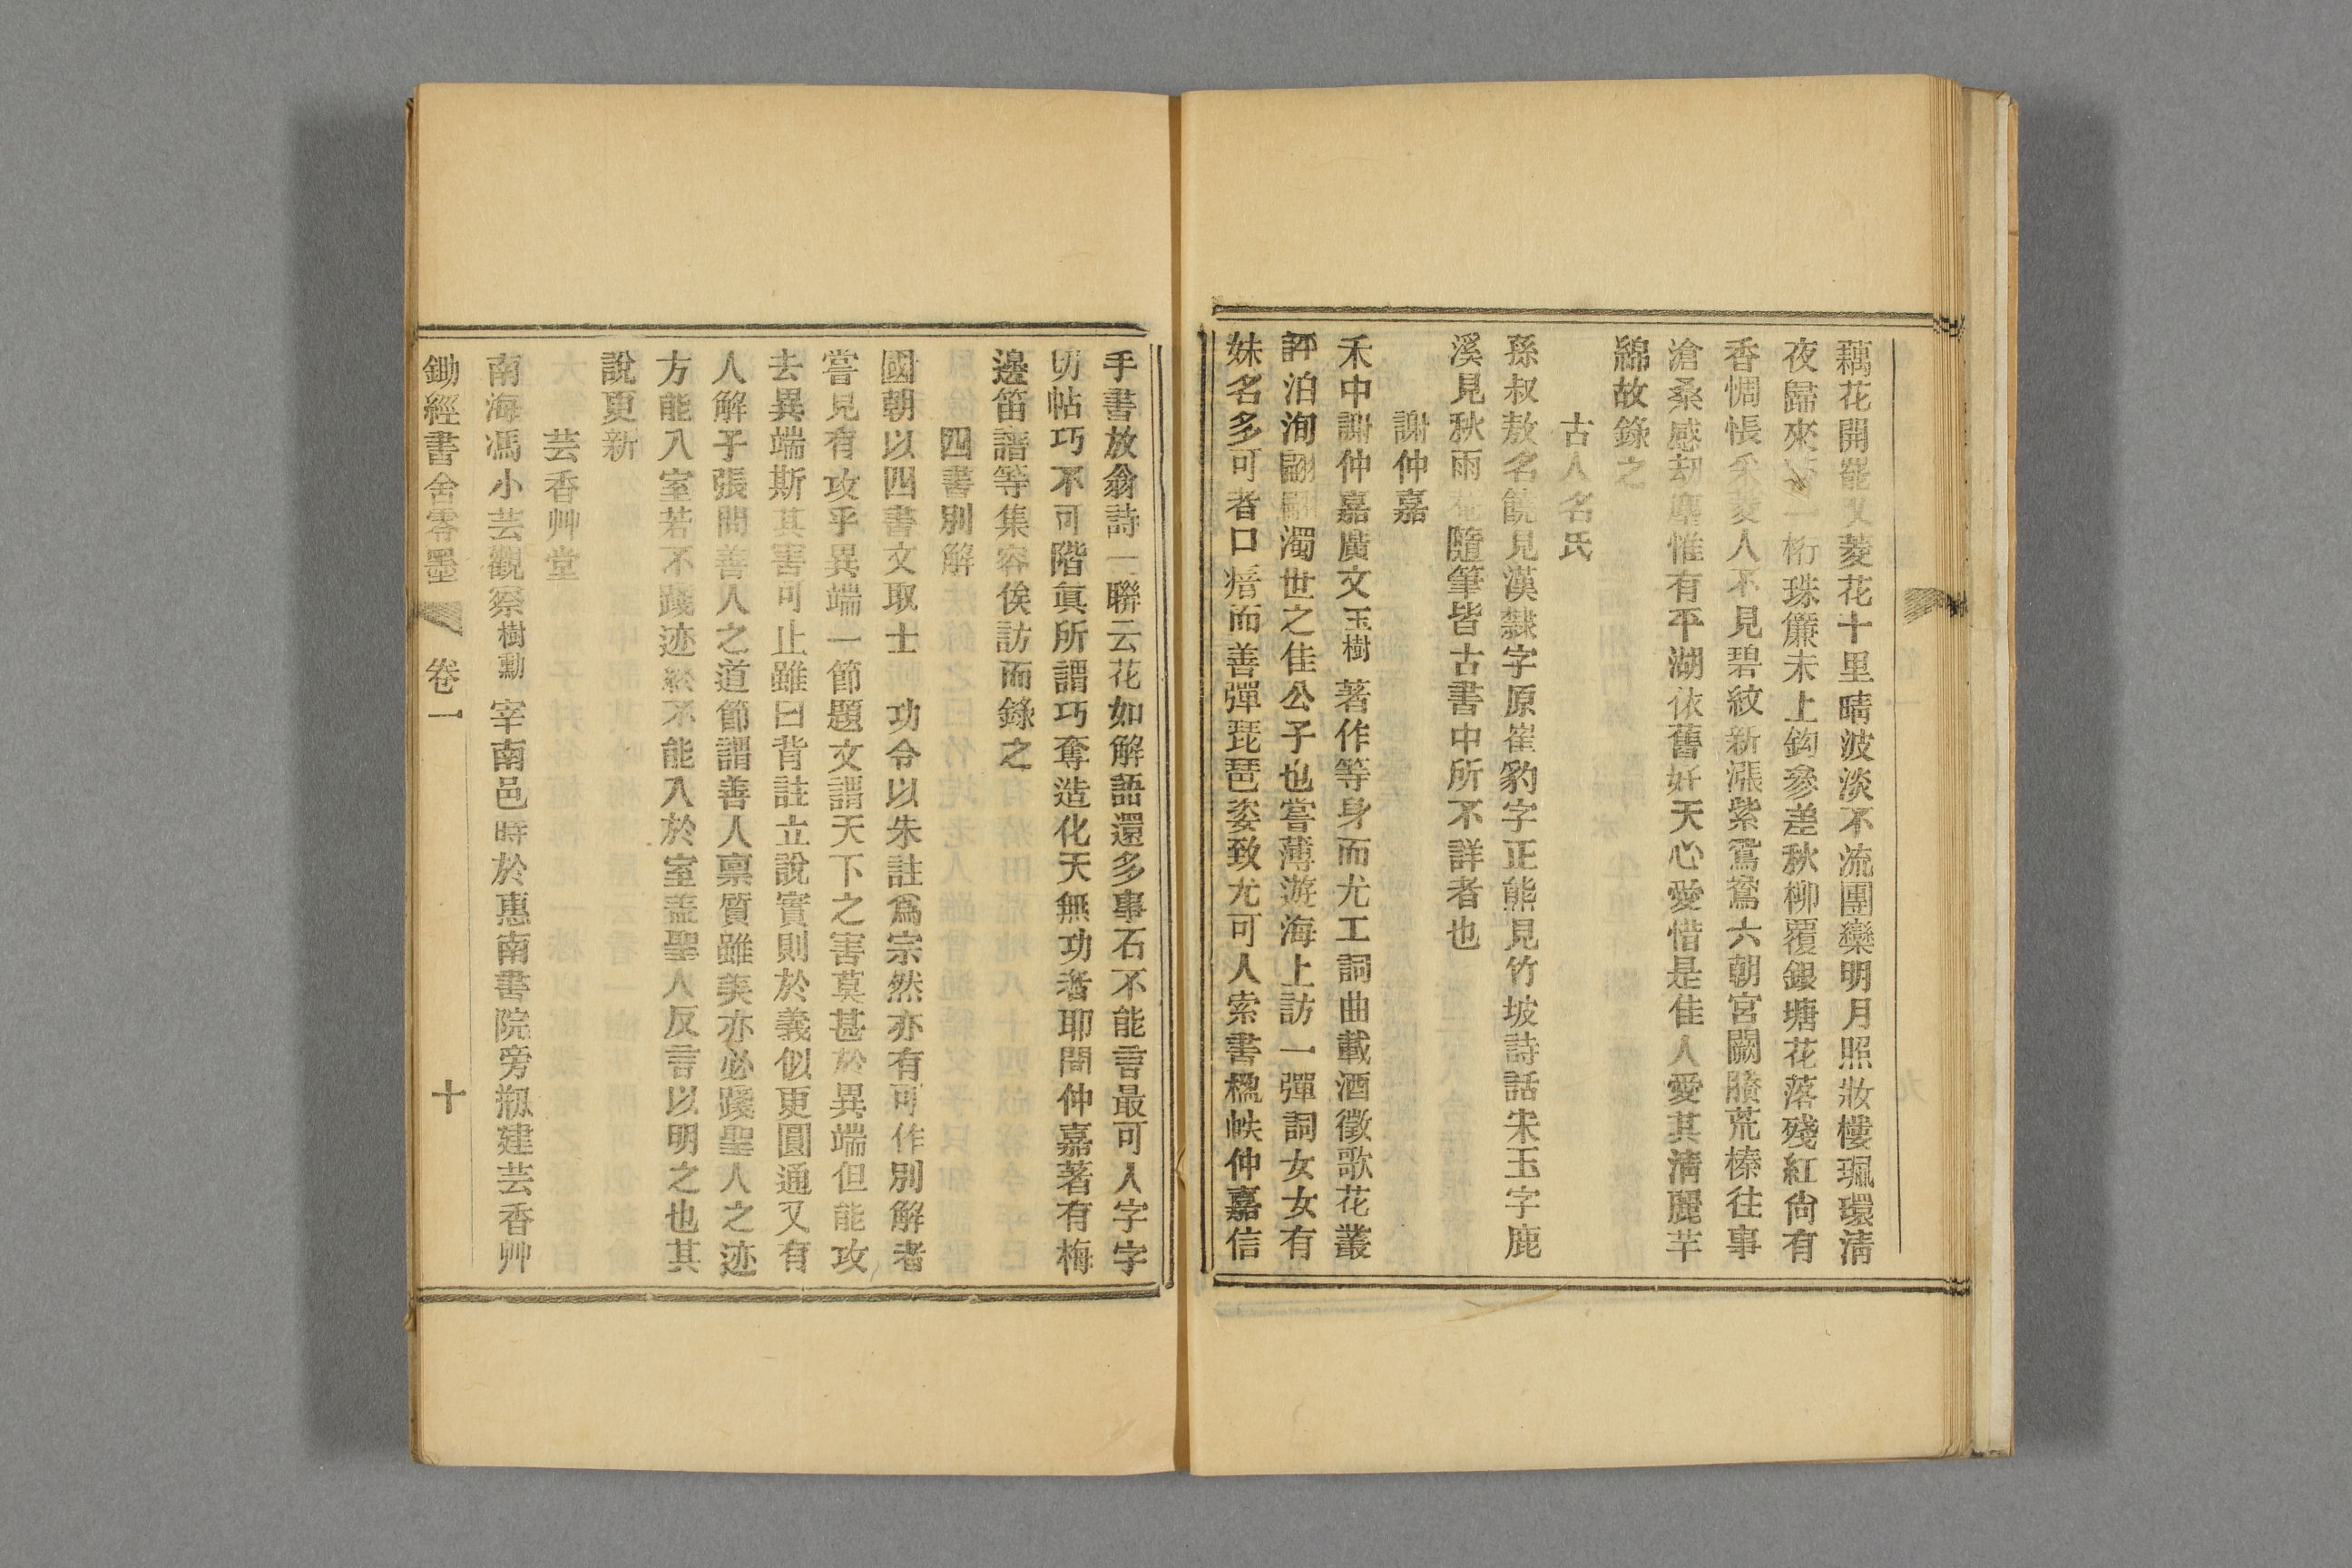 藕花開罷又菱花十里晴波淡不流團欒明月照妝樓珮環淸
夜歸來一桁珠簾未上鈎參差秋柳覆銀塘花落殘紅尙有
香惆悵采菱人不見碧紋新漲紫鴛鴦六朝宮闕賸荒榛往事
滄桑感刧塵惟有平湖依舊好天心愛惜是佳人愛其淸麗芊
綿故錄之
古人名氏
孫叔敖名饒見漢隸字原崔豹字正熊見竹坡詩話宋玉字鹿
溪見秋雨盦隨筆皆古書中所不詳者也
謝仲嘉
禾中謝仲嘉廣文玉樹著作等身而尤工詞曲載酒徵歌花叢
評泊洵翩翩濁世之佳公子也嘗薄游海上訪一彈詞女女有
妹名多可者口瘖而善彈琵琶姿致尤可人索書楹帙仲嘉信
手書放翁詩一聯云花如解語還多事石不能言最可人字字
切帖巧不可階眞所謂巧奪造化天無功者耶間仲嘉著有梅
邊笛譜等集容俟訪而錄之
四書別解
國朝以四書文取士 功令以朱註爲宗然亦有可作別解者
嘗見有攻乎異端一節題文謂天下之害莫甚於異端但能攻
去異端斯其害可止雖曰背註立說實則於義似更圓通又有
人解子張問善人之道節謂善人禀質雖美亦必踐聖人之迹
方能入室若不踐迹終不能入於室盖聖人反言以明之也其
說更新
芸香艸堂
南海馮小芸觀察樹勳宰南邑時於惠南書院旁剏建芸香艸
鋤經書舍零墨 卷一 十